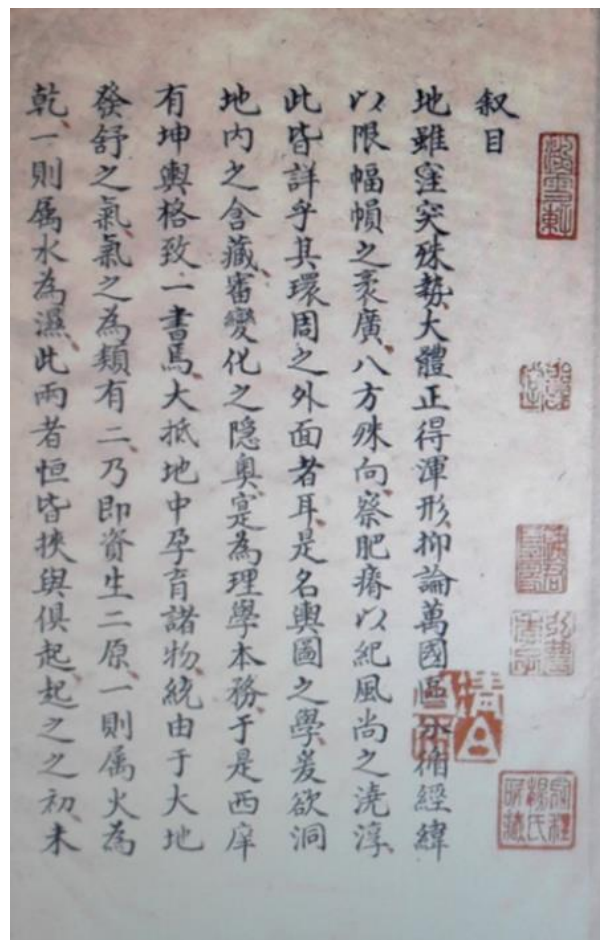 叙目
地雖窪突殊勢大體正得渾形抑論萬國區分循經緯
以限幅㡓之袤廣八方殊向察肥瘠以紀風尚之澆淳
此皆詳乎其環周之外面者耳是名輿圖之學爰欲洞
地內之含藏審變化之隐奥寔為理學本務于是西庠
有坤輿格致一書焉大抵地中孕育諸物統由于大地
發舒之氣氣之為類有二乃即資生二原一則属火為
乾一則属水為濕此兩者恒皆挾與俱起起之之初未